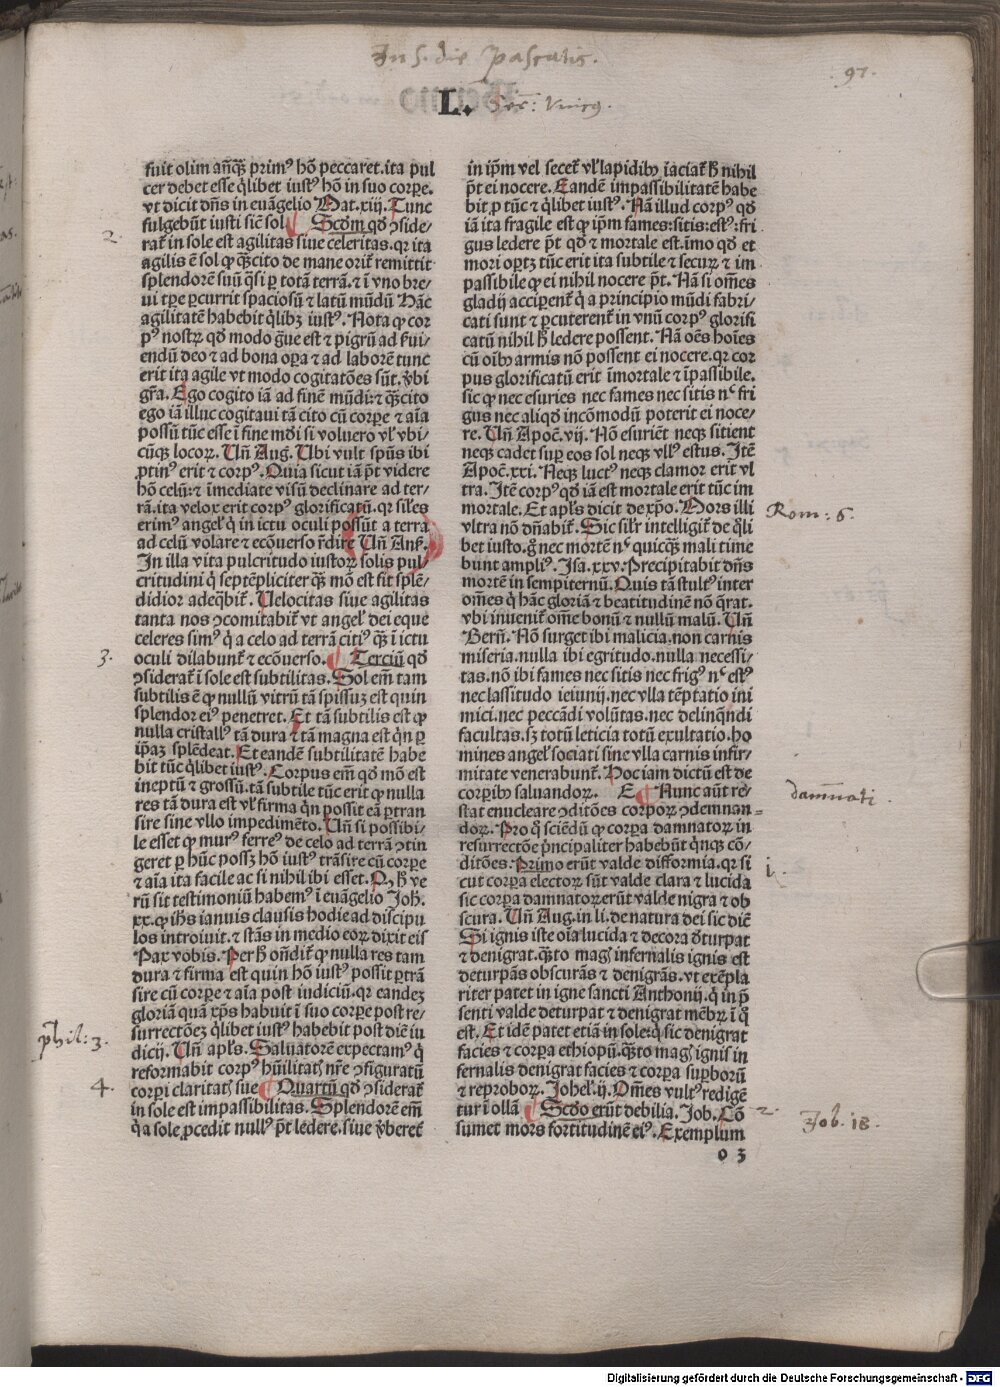 In s. die pascatis.
97.
L.
fuit olim anq̃ꝫ primꝰ hõ peccaret. ita pul
cer debet esse q̃libet iustꝰ hõ in suo corpe.
vt dicit dñs in euãgelio Mat. xiij. Tunc
fulgebũt iusti sic̃ sol. Scdm qd̃ ꝯside/
2.
rat̃ in sole est agilitas siue celeritas. qꝛ ita
agilis ẽ sol ꝙ q̃scito de mane orit̃ remittit
splendorẽ suũ q̃si ꝑ totã terrã. ⁊ ĩ vno bre/
ui tꝑe ꝑcurrit spaciosũ ⁊ latũ mũdũ Hãc
agilitatẽ habebit q̃libꝫ iustꝰ. Nota ꝙ cor
pꝰ nostꝝ qd̃ modo g̃ue est ⁊ pigrũ ad s̃ui/
endũ deo ⁊ ad bona oꝑa ⁊ ad laborẽ tunc
erit ita agile vt modo cogitatões sũt. v̾bi
gr̃a. Ego cogito iã ad finẽ mũdi: ⁊ q̃scito
ego iã illuc cogitaui tã cito cũ corꝑe ⁊ aĩa
possũ tũc esse ĩ fine mũdi si voluero vl̾ vbi/
cũqꝫ locoꝝ. Uñ Aug. Ubi vult spũs ibi
ꝓtinꝰ erit ⁊ corpꝰ. Quia sicut iã pt̃ videre
hõ celũ: ⁊ ĩmediate visũ declinare ad ter/
rã. ita velox erit corpꝰ glorificatũ. qꝛ siles
erimꝰ angel̾ q̃ in ictu oculi possũt a terra
ad celũ volare ⁊ ecõuerso r̃dire Uñ Anſ.
In illa vita pulcritudo iustoꝝ solis pul/
critudini q̃ septẽpliciter q̃ꝫ mõ est sit splẽ/
didior adeq̃bit̃. Uelocitas siue agilitas
tanta nos ꝯcomitabit̃ vt angel̾ dei eque
celeres simꝰ q̃ a celo ad terrã citiꝰ q̃ꝫ ĩ ictu
3.
oculi dilabunt̃ ⁊ ecõuerso. Terciũ qd̃
ꝯsiderat̃ ĩ sole est subtilitas. Sol em̃ tam
subtilis ẽ ꝙ nullũ vitrũ tã spissuꝫ est quin
splendor eiꝰ penetret. Et tã subtilis est ꝙ
nulla cristallꝰ tã dura ⁊ tã magna est q̃n ꝑ
ip̃aꝫ splẽdeat. Et eandẽ subtilitatẽ habe
bit tũc q̃libet iustꝰ. Corpus em̃ qd̃ mõ est
ineptũ ⁊ grossũ. tã subtile tũc erit ꝙ nulla
res tã dura est vl̾ firma q̃n possit eã ꝑtran
sire sine vllo impedimẽto. Uñ si possibi/
le esset ꝙ murꝰ ferreꝰ de celo ad terrã ꝯtin
geret ꝑ hũc possꝫ hõ iustꝰ trãsire cũ corꝑe
⁊ aĩa ita facile ac si nihil ibi esset. Q̃ h̾ ve
rũ sit testimoniũ habemꝰ ĩ euãgelio Joh.
xx. ꝙ ihs̃ ianuis clausis hodie ad discipu
los introiuit. ⁊ stãs in medio eoꝝ dixit eis
Pax vobis. Per h̾ oñdit̃ ꝙ nulla res tam
dura ⁊ firma est quin hõ iustꝰ possit ꝑtrã
sire cũ corꝑe ⁊ aĩa post iudiciũ. qꝛ eandeꝫ
gloriã quã xp̃s habuit ĩ suo corꝑe post re/
surrectõeꝫ q̃libet iustꝰ habebit post diẽ iu
phil: 3.
dicij. Uñ apl̾s. Saluatorẽ expectamꝰ q̃
reformabit corpꝰ hũilitat̾ nr̃e ꝯfiguratũ
4.
corꝑi claritat̾ sue Quartũ qd̃ ꝯsiderat̃
in sole est impassibilitas. Splendorẽ em̃
q̃ a sole ꝓcedit nullꝰ pt̃ ledere. siue v̾beret̃
in ip̃m vel secet̃ vl̾ lapidibꝰ iaciat̃ h̾ nihil
pt̃ ei nocere. Eandẽ impassibilitatẽ habe
bit ꝓ tũc ⁊ q̃libet iustꝰ. Nã illud corpꝰ qd̃
iã ita fragile est ꝙ ip̃m fames: sitis: estꝰ: fri
gus ledere pt̃ qd̃ ⁊ mortale est. ĩmo qd̃ et
mori oꝑtꝫ tũc erit ita subtile ⁊ securꝫ ⁊ im
passibile ꝙ ei nihil nocere pt̃. Nã si om̃es
gladij acciꝑent̃ q̃ a principio mũdi fabri/
cati sunt ⁊ ꝑcuterent̃ in vnũ corpꝰ glorifi
catũ nihil h̾ ledere possent. Nã oẽs hoĩes
cũ oĩbꝰ armis nõ possent ei nocere. qꝛ cor
pus glorificatũ erit ĩmortale ⁊ ĩpassibile.
sic ꝙ nec esuries nec fames nec sitis nc̾ fri
gus nec aliqd̃ incõmodũ poterit ei noce/
re. Uñ Apoc̃. vij. Nõ esuriẽt neqꝫ sitient
neqꝫ cadet suꝑ eos sol neqꝫ vllꝰ estus. Itẽ
Apoc̃. xxi. Neqꝫ luctꝰ neqꝫ clamor erit vl
tra. Itẽ corpꝰ qd̃ iã est mortale erit tũc im
mortale. Et apl̾s dicit de xp̃o. Mors illi
Rom: 6.
vltra nõ dñabit̃. Sic sil̾r intelligit̃ de q̃li
bet iusto. g̾ nec mortẽ nc̾ quicqꝫ mali time
bunt ampliꝰ. Jsa. xxv. Precipitabit dñs
mortẽ in sempiternũ. Quis tã stultꝰ inter
om̃es q̃ hãc gloriã ⁊ beatitudinẽ nõ q̃rat.
vbi inuenit̃ om̃e bonũ ⁊ nullũ malũ. Uñ
Berñ. Nõ surget ibi malicia. non carnis
miseria. nulla ibi egritudo. nulla necessi/
tas. nõ ibi fames nec sitis nec frigꝰ nc̾ estꝰ
nec lassitudo ieiunij. nec vlla tẽptatio ini
mici. nec peccãdi volũtas. nec delinq̃ndi
facultas. sꝫ totũ leticia totũ exultatio. ho
mines angel̾ sociati sine vlla carnis infir/
mitate venerabunt̃. Hoc iam dictũ est de
corꝑibꝰ saluandoꝝ. E Nunc aũt re/
damnati.
stat enucleare ꝯditões corpoꝝ ꝯdemnan/
doꝝ. Pro q̃ sciẽdũ ꝙ corꝑa damnatoꝝ in
resurrectõe p̃ncipaliter habebũt q̃nqꝫ cõ/
1.
ditões. Primo erũt valde difformia. qꝛ si
cut corꝑa electoꝝ sũt valde clara ⁊ lucida
sic corꝑa damnatoꝝ erũt valde nigra ⁊ ob
scura. Uñ Aug. in li. de natura dei sic diẽ
Si ignis iste oĩa lucida ⁊ decora d̾turpat
⁊ denigrat. q̃to mag̾ infernalis ignis est
deturpãs obscurãs ⁊ denigrãs. vt exẽpla
riter patet in igne sancti Anthonij. q̃ in p̃
senti valde deturpat ⁊ denigrat mẽbꝝ ĩ q̃
est. Et idẽ patet etiã in sole. q̃ sic denigrat
facies ⁊ corꝑa ethiopũ. q̃to mag̾ ignis in
fernalis denigrat facies ⁊ corꝑa suꝑborũ
⁊ reproboꝝ. Johel̾. ij. Om̃es vultꝰ redigẽ
tur ĩ ollã Scd̃o erũt debilia. Job. Cõ
2.
Job. 18.
sumet mors fortitudinẽ eiꝰ. Exemplum
o 3
Digitalisierung gefördert durch die Deutsche Forschungsgemeinschaft - DFG